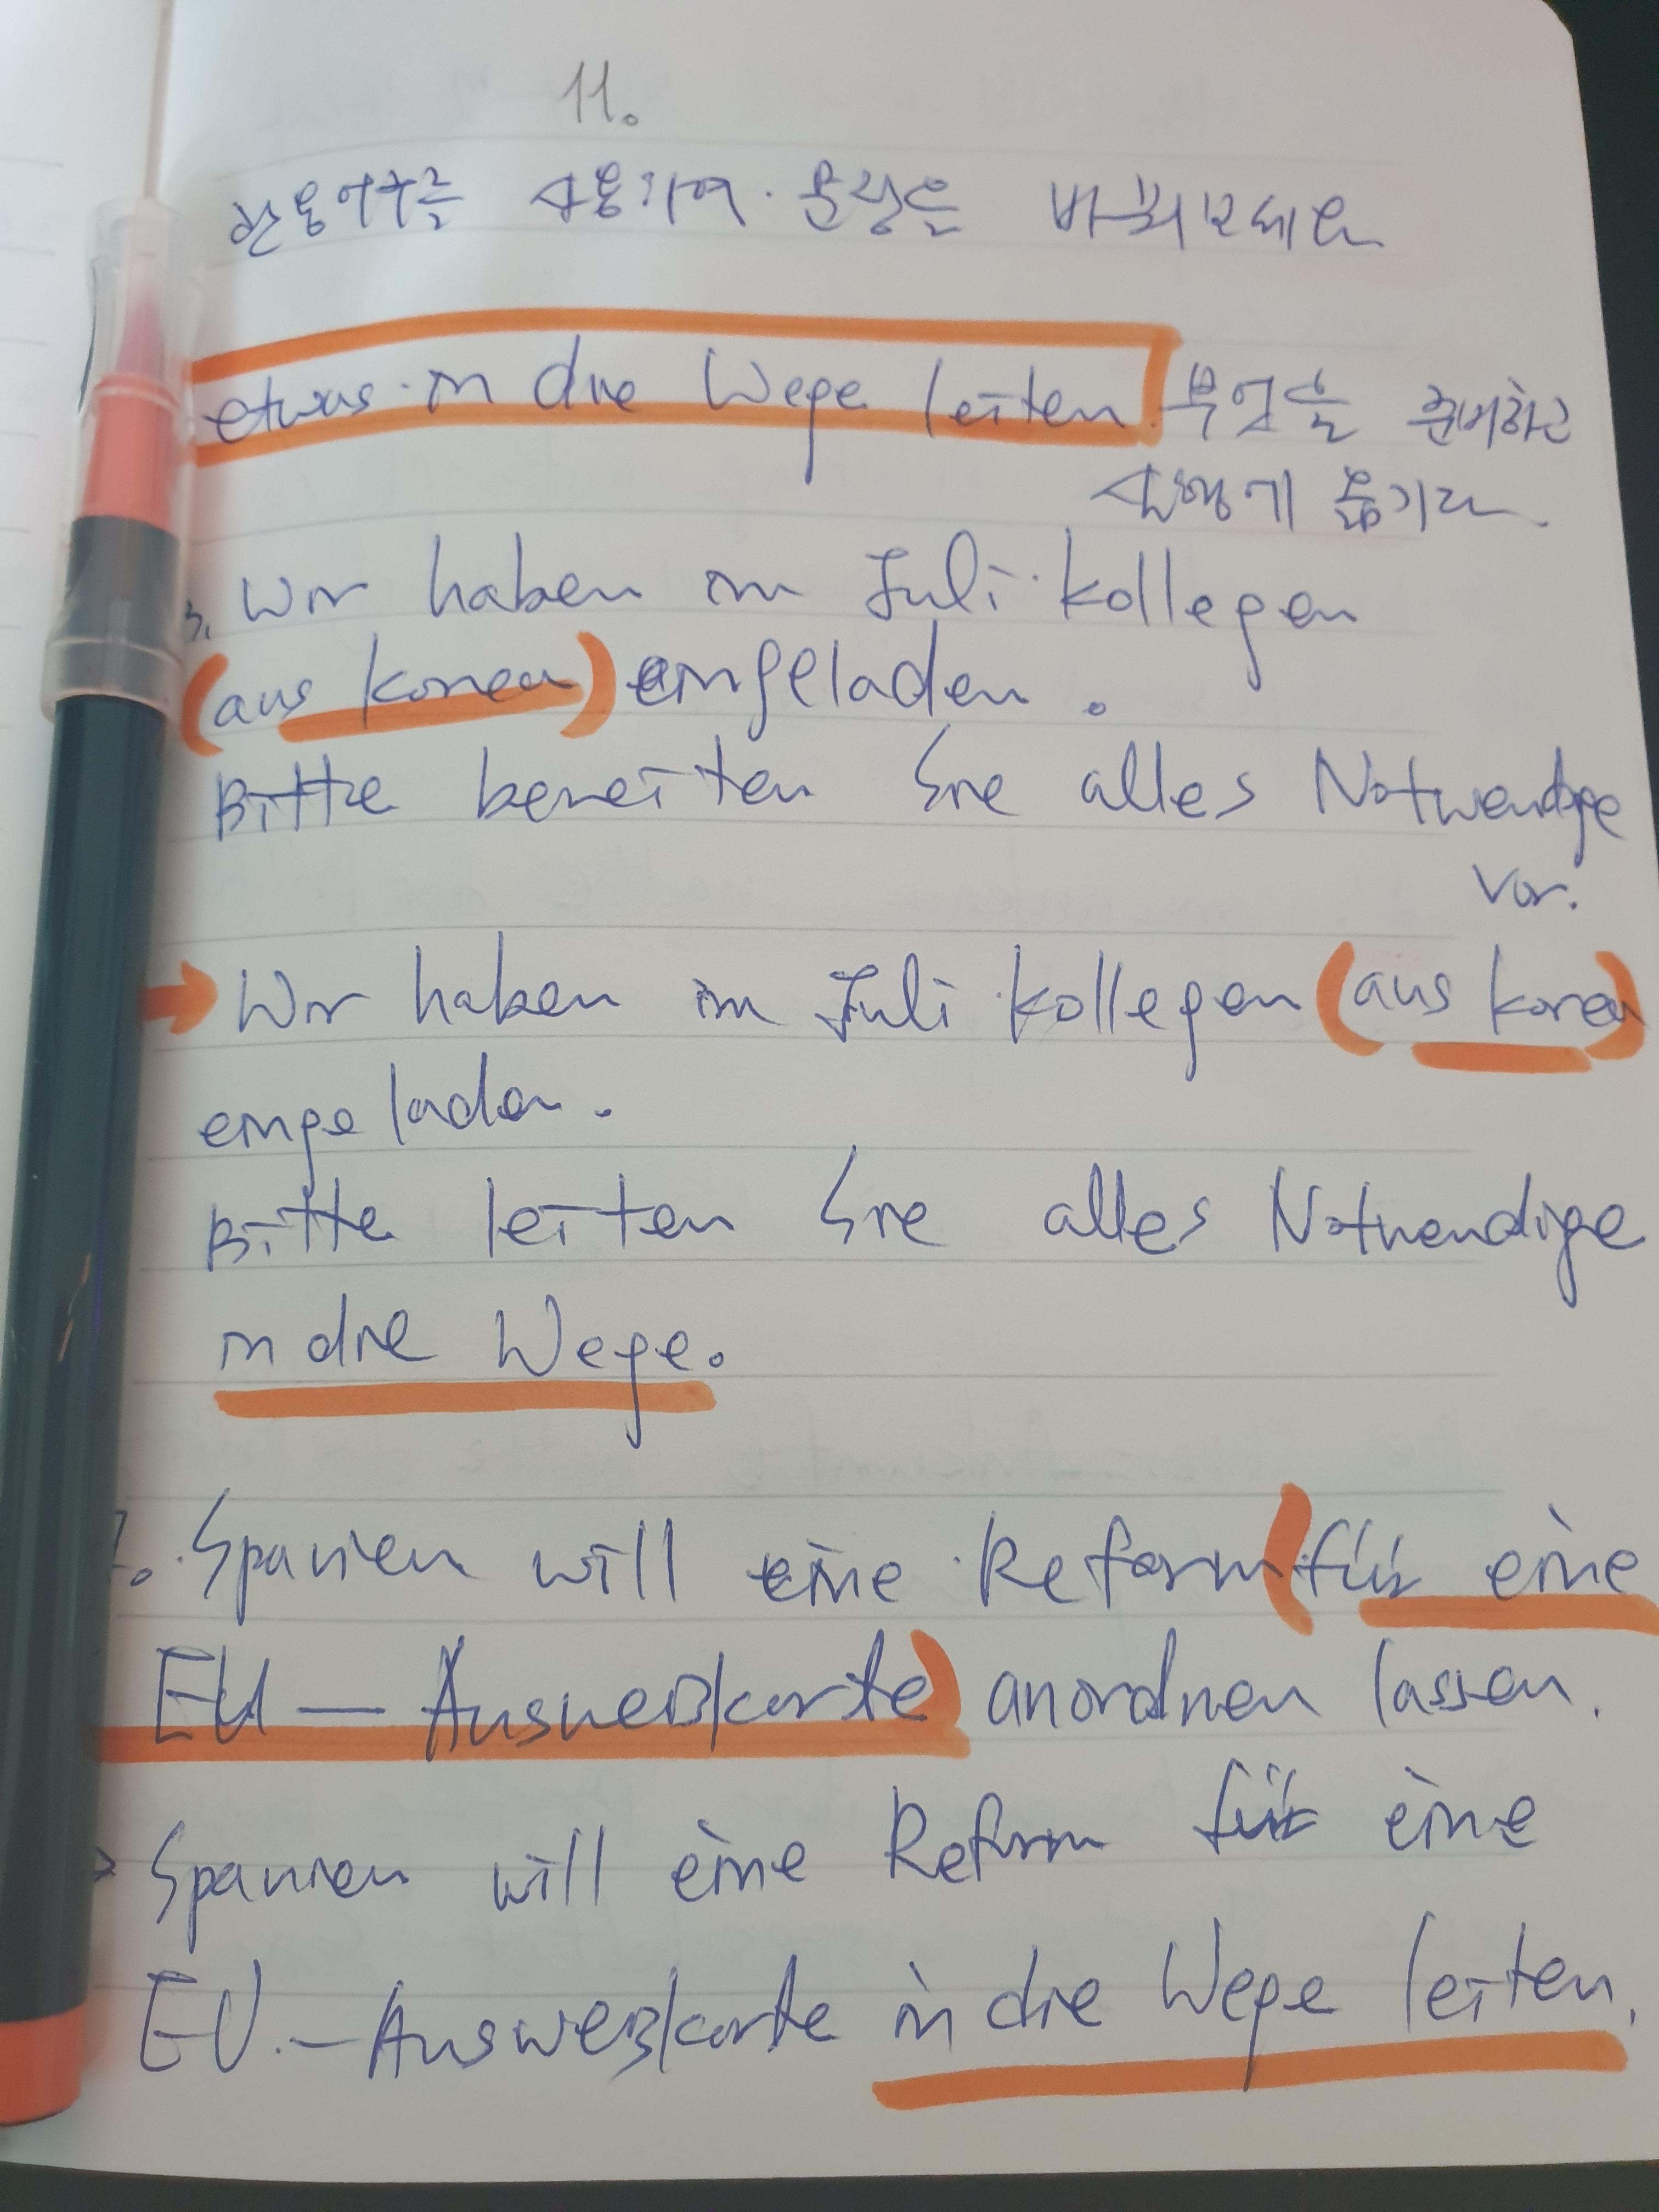 11.
관용어구를 사용하여 문장을 바꿔보세요
etwas in die Wege leiten 무엇을 준비하고
실행에 옮기다.
3. Wir haben im Juli Kollegen
(aus Korea) eingeladen.
Bitte bereiten Sie alles Notwendige
vor.
→ Wir haben im Juli Kollegen (aus Korea)
eingeladen.
Bitte leiten Sie alles Notwendige
in die Wege.
7. Spanien will eine Reform (für eine
EU-Ausweißkarte) anordnen lassen.
→ Spanien will eine Reform für eine
EU.-Ausweißkarte in die Wege leiten.